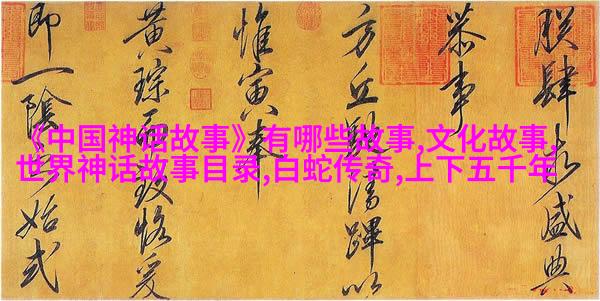 《中国神话故事》有哪些故事,文化故事,
世界神话故事目录,白蛇传奇,上下五千年
朕肆求盛典
恭事
方丘潔以
惟寅奉
黄琮而致恪爰
即一陰之始式